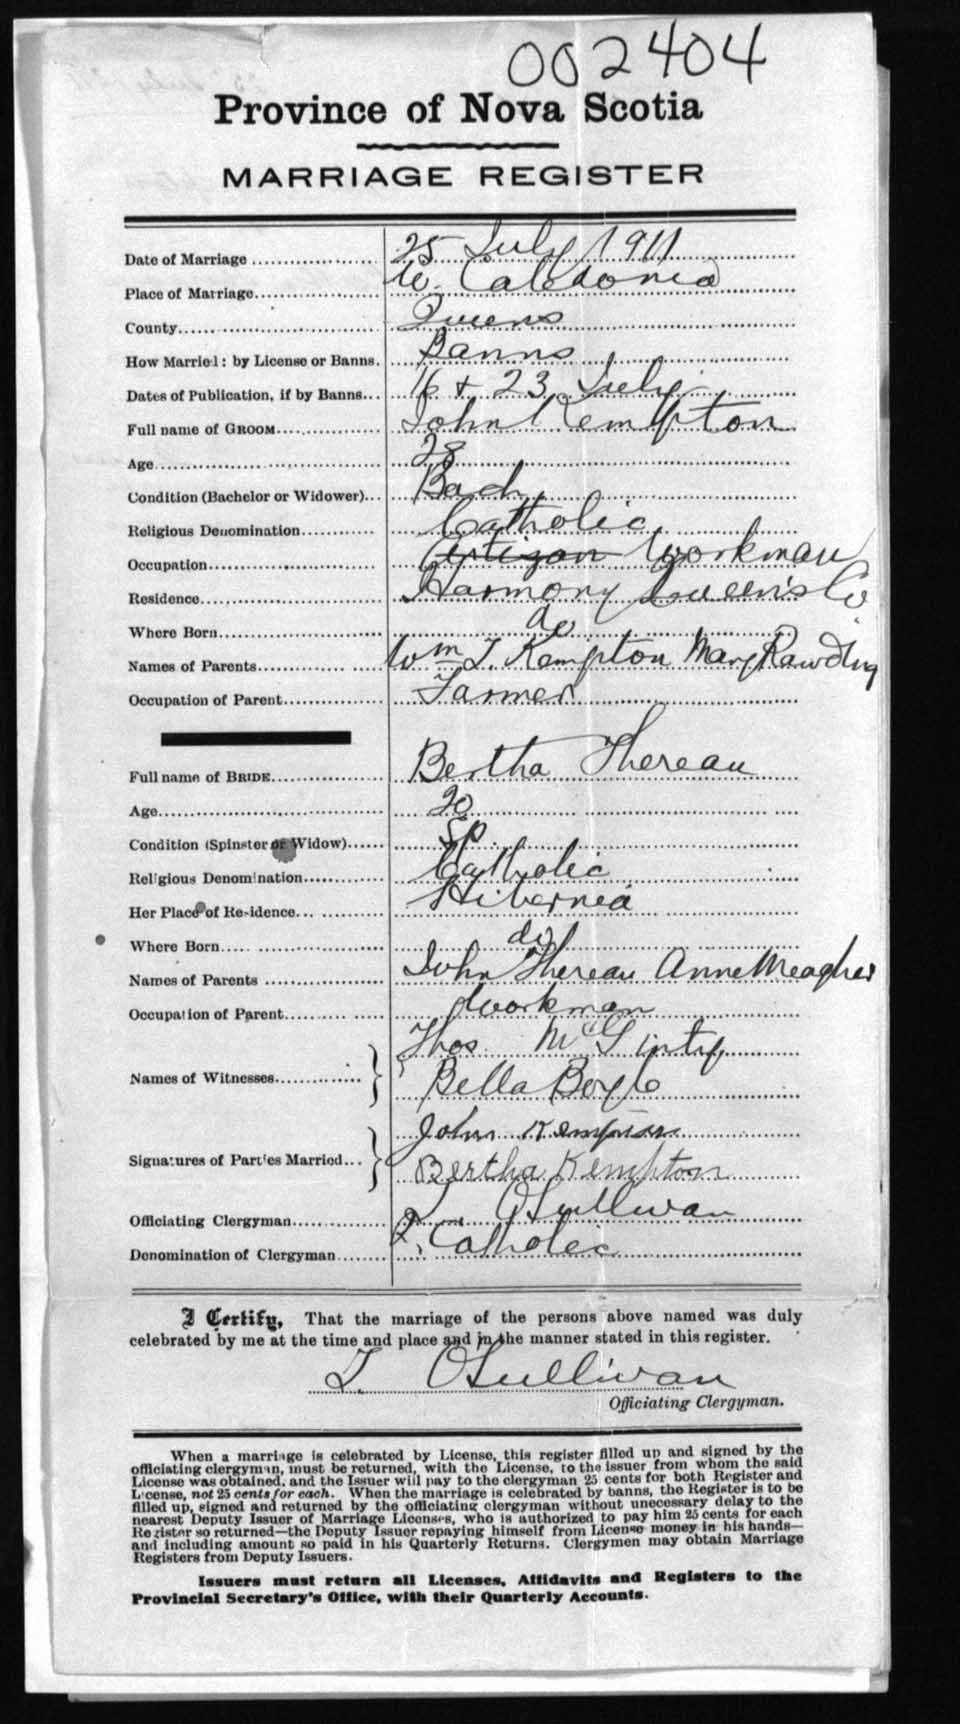 002404
Province of Nova Scotia
MARRIAGE REGISTER
Date of Marriage 25 July 1911
Place of Marriage W. Caledonia
County Queens
How Married: by License or Banns. Banns
Dates of Publication, if by Banns 16 + 23 July
Full name of GROOM John Kempton
Age 28
Condition (Bachelor or Widower) Bach
Religious Denomination Catholic
Occupation Artizan Workman
Residence Harmony Queen's Co.
Where Born do
Names of Parents Wm T. Kempton Mary Rawding
Occupation of Parent Farmer
Full name of BRIDE Bertha Thereau
Age 20
Condition (Spinster or Widow) Sp.
Religious Denomination Catholic
Her Place of Residence Hibernia
Where Born do
Names of Parents John Thereau Anne Meagher
Occupation of Parent Workman
Names of Witnesses Thos McGinty
Bella Boyle
Signatures of Parties Married John Kempton
Bertha Kempton
Officiating Clergyman O'Sullivan
Denomination of Clergyman R. Catholic
I Certify, That the marriage of the persons above named was duly
celebrated by me at the time and place and in the manner stated in this register.
T. O'Sullivan
Officiating Clergyman.
When a marriage is celebrated by License, this register filled up and signed by the
officiating clergyman, must be returned, with the License, to the issuer from whom the said
License was obtained, and the Issuer will pay to the clergyman 25 cents for both Register and
License, not 25 cents for each. When the marriage is celebrated by banns, the Register is to be
filled up, signed and returned by the officiating clergyman without unecessary delay to the
nearest Deputy Issuer of Marriage Licenses, who is authorized to pay him 25 cents for each
Register so returned—the Deputy Issuer repaying himself from License money in his hands—
and including amount so paid in his Quarterly Returns. Clergymen may obtain Marriage
Registers from Deputy Issuers.
Issuers must return all Licenses, Affidavits and Registers to the
Provincial Secretary's Office, with their Quarterly Accounts.